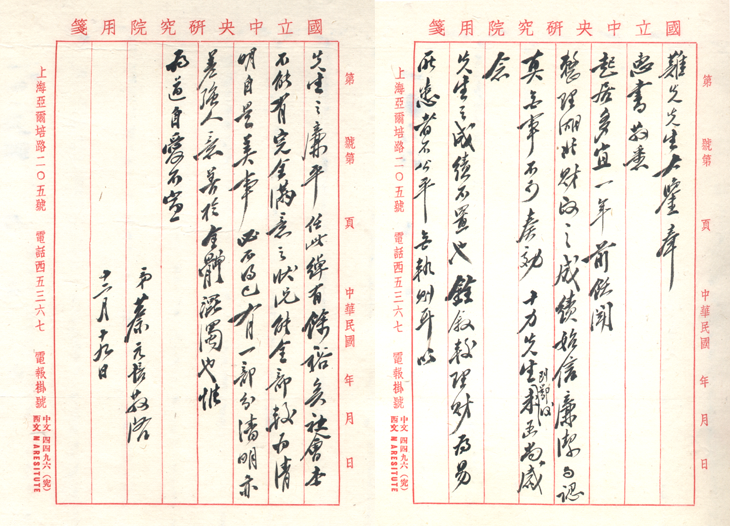 國立中央研究院用箋
第 號第 頁 中華民國 年 月 日
難先先生大鑒奉
惠書敬悉
起居多宜一年前飫聞
整理湖北財政之成績始信廉潔與認
真無事不可奏効十力先生到鄂後來函尚感
念
先生之成績不置也銓敘較理財為易
所患者不公平 耳以
上海亞爾培路二〇五號 電話西五三六七 電報掛號 中文四四九六(完) 西文MARESITUTE
國立中央研究院用箋
第 號第 頁 中華民國 年 月 日
先生之廉平任此綽有餘裕矣社會本
不能有完全滿意之狀況能全部較為清
明自是美事必不得已有一部分清明亦
差強人意善於全體溷濁也惟
為道自愛不宣
弟蔡元培敬啓
十二月十九日
上海亞爾培路二〇五號 電話西五三六七 電報掛號 中文四四九六(完) 西文MARESITUTE